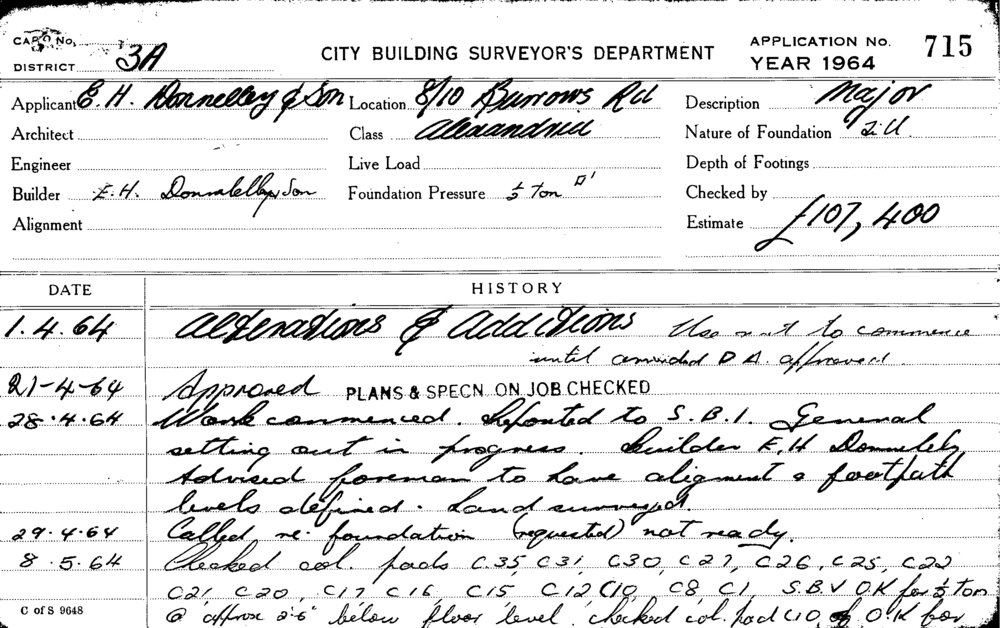 CARD No.
DISTRICT 3A
CITY BUILDING SURVEYOR'S DEPARTMENT
APPLICATION No. 715
YEAR 1964
Applicant E. H. Donnelley & Son Location 8/10 Burrows Rd Description Major
Architect Class Alexandria Nature of Foundation
Engineer Live Load Depth of Footings
Builder E. H. Donnelley & Son Foundation Pressure ½ Ton □' Checked by
Alignment Estimate £107,400
DATE HISTORY
1.4.64 Alterations & Additions Use not to commence
until amended D A. approved
21-4-64 Approved PLANS & SPECN ON JOB CHECKED
28.4.64 Work commenced. Reported to S.B.I. General
setting out in progress. Builder E.H Donnelley
Advised foreman to have alignment & footpath
levels defined. Land surveyed.
29.4.64 Called re. foundation (requested) not ready.
8.5.64 Checked col. pads C35 C31 C30 C27, C26, C25, C22
C21 C20, C17 C16, C15, C12 C10, C8 C1, S.B.V O.K for ½ Ton
@ approx 2'6" below floor level, checked col. pad C10 O.K for
C of S 9648